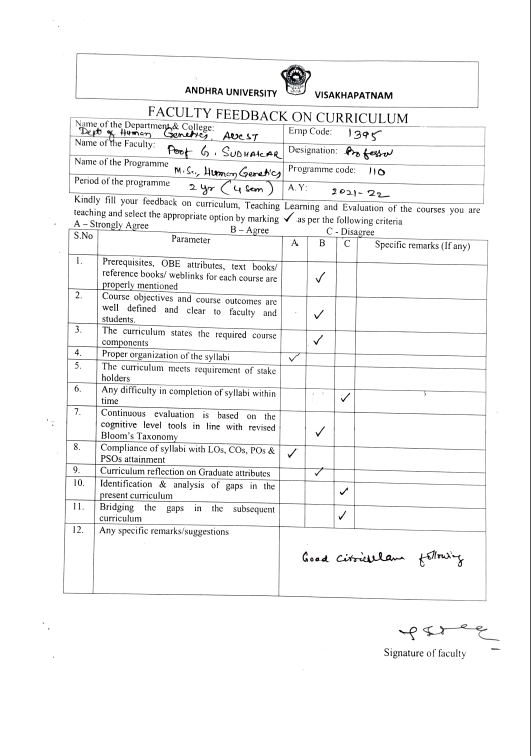 ANDHRA UNIVERSITY VISAKHAPATNAM
FACULTY FEEDBACK ON CURRICULUM
Name of the Department & College:
Dept of Human Genetics, AUCST
Emp Code: 1395
Name of the Faculty: Prof G. SUDHAKAR
Designation: Professor
Name of the Programme M.Sc., Human Genetics
Programme code: 110
Period of the programme 2 yr (4 sem)
A.Y: 2021-22
Kindly fill your feedback on curriculum, Teaching Learning and Evaluation of the courses you are
teaching and select the appropriate option by marking ✓ as per the following criteria
A – Strongly Agree B – Agree C - Disagree
S.No Parameter A B C Specific remarks (If any)
1. Prerequisites, OBE attributes, text books/
reference books/ weblinks for each course are
properly mentioned ✓
2. Course objectives and course outcomes are
well defined and clear to faculty and
students. ✓
3. The curriculum states the required course
components ✓
4. Proper organization of the syllabi ✓
5. The curriculum meets requirement of stake
holders
6. Any difficulty in completion of syllabi within
time ✓
7. Continuous evaluation is based on the
cognitive level tools in line with revised
Bloom's Taxonomy ✓
8. Compliance of syllabi with LOs, COs, POs &
PSOs attainment ✓
9. Curriculum reflection on Graduate attributes ✓
10. Identification & analysis of gaps in the
present curriculum ✓
11. Bridging the gaps in the subsequent
curriculum ✓
12. Any specific remarks/suggestions
Good following
Signature of faculty